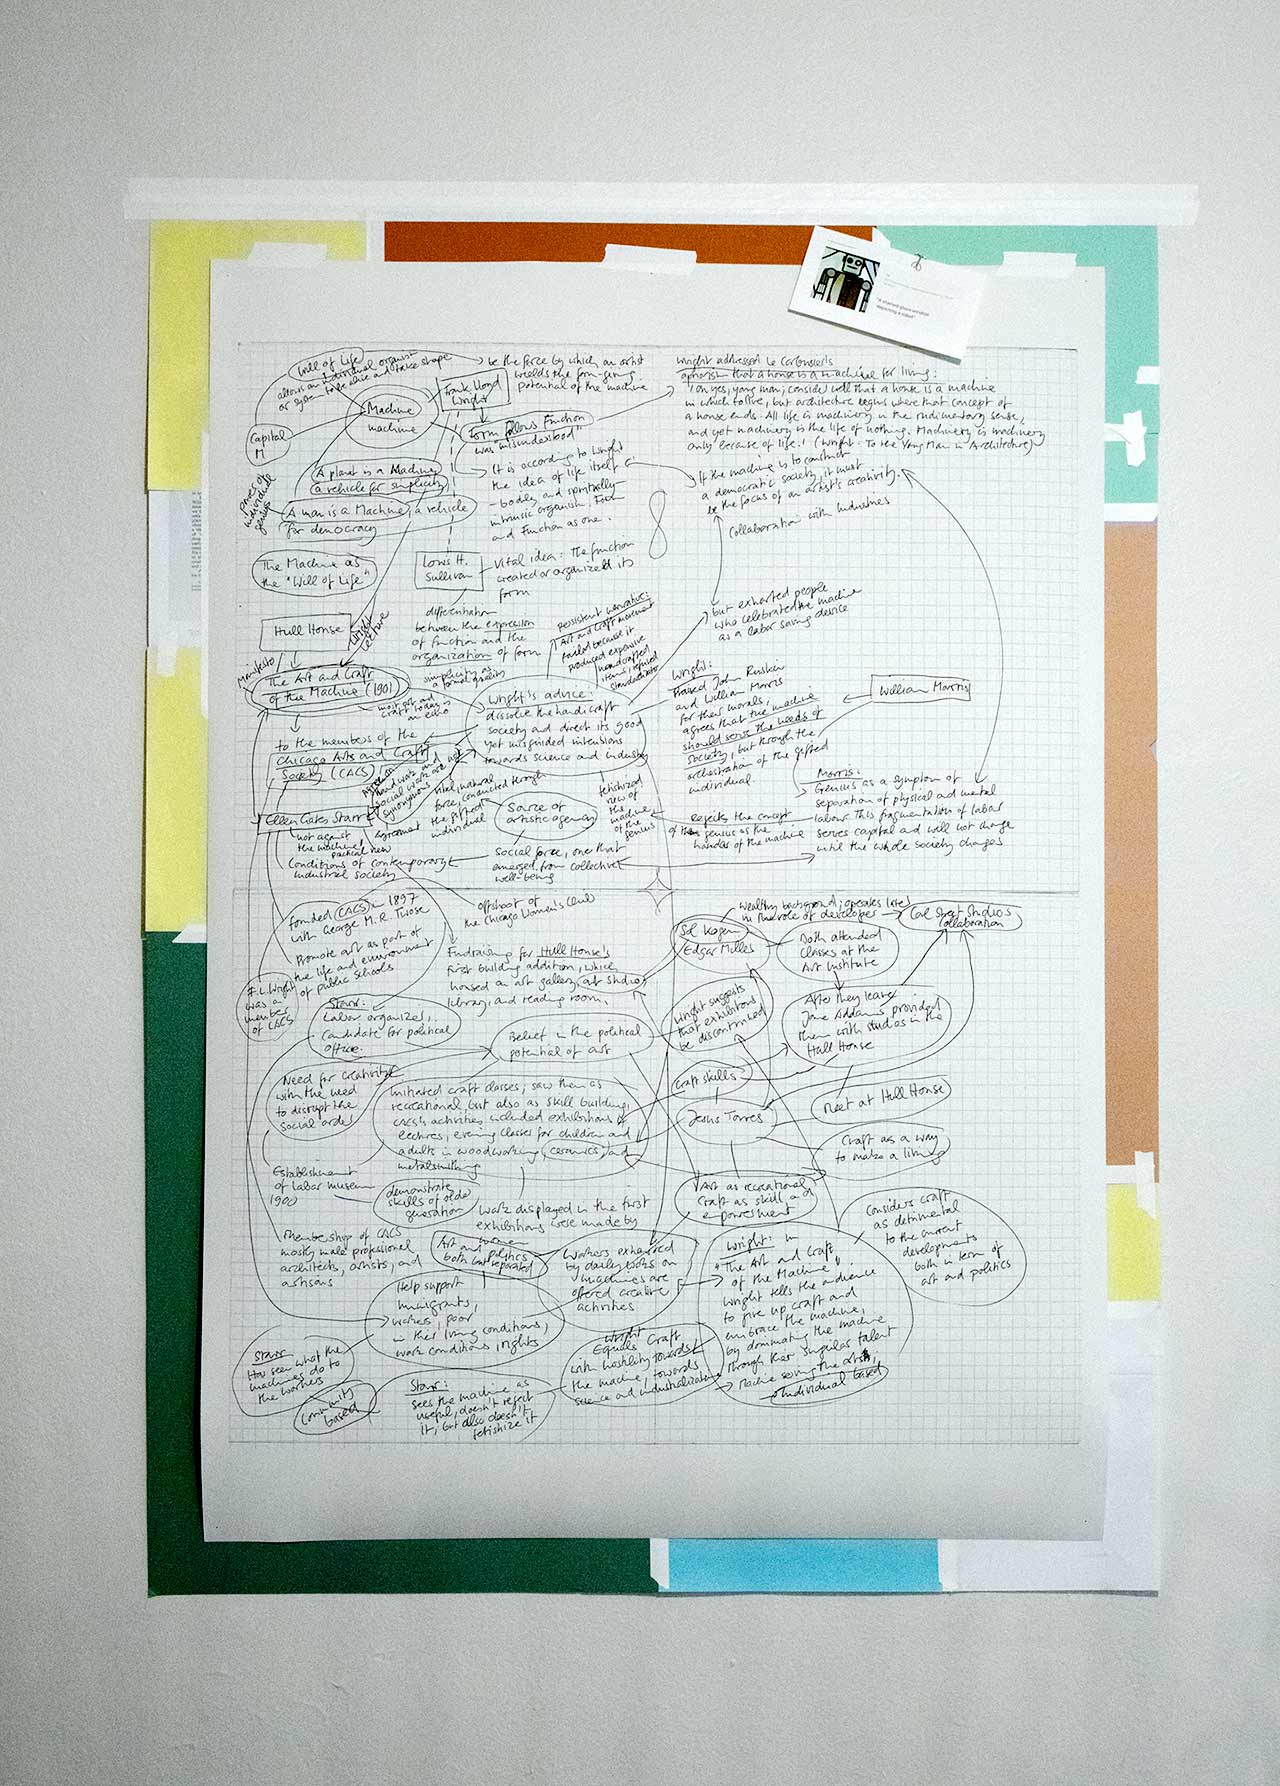 "A stained glass window
depicting a robot"
Will of Life
allows an individual organism
or system to be alive and take shape
be the force by which an artist
wields the form-giving
potential of the machine
Frank Lloyd
Wright
Machine
machine
Capital
M
Form follows Function
was "misunderstood"
Wright addressed Le Corbusier's
aphorism that a house is a machine for living:
'Oh yes, young man; consider well that a house is a machine
in which to live, but architecture begins where that concept of
a house ends. All life is machinery in the rudimentary sense,
and yet machinery is the life of nothing. Machinery is machinery
only because of life.' (Wright: To the Young Man in Architecture)
A planet is a Machine,
a vehicle for simplicity
A man is a Machine, a vehicle
for democracy
power of
individual
genius
It is according to Wright
the idea of life itself
- bodily and spiritually -
intrinsic organism. Form
and Function as one.
If the machine is to construct
a democratic society, it must
be the focus of an artist's creativity.
Collaboration with Industries
The Machine as
the "Will of Life"
Louis H.
Sullivan
Vital idea: The function
created or organized its
form
differentiation
between the expression
of function and the
organization of form
simplicity as
a formal quality
persistent narrative:
Art and Craft movement
failed because it
produced expensive
handcrafted
items, refused
standardization
but exhorted people
who celebrated the machine
as a labor saving device
Hull House
Wright
lecture
Manifesto
The Art and Craft
of the Machine (1901)
most art and
craft today is
an echo
to the members of the
Chicago Arts and Craft
Society (CACS)
Wright's advice:
dissolve the handicraft
society and direct its good
yet misguided intentions
towards science and industry
Wright:
Praised John Ruskin
and William Morris
for their morals,
agrees that the machine
should serve the needs of
society, but through the
orchestration of the gifted
individual
William Morris
Morris:
Genius as a symptom of
separation of physical and mental
labour. This fragmentation of labor
serves capital and will not change
until the whole society changes
handwork and
social work are not
synonymous
vital, natural
force, conducted through
the gifted
individual
Source of
artistic agency
fetishized
view of
the
machine
of the
genius
Rejects the concept
of the genius as the
handler of the machine
Ellen Gates Starr
not against
the machine,
practical view
Agreement
Conditions of contemporary
industrial society
Social force, one that
emerged from collective
well-being
founded CACS in 1897
with George M. R. Twose
offshoot of
the Chicago Women's Club
Promote art as part of
the life and environment
of public schools
F.L. Wright
was a
member
of CACS
Fundraising for Hull House's
first building addition, which
housed an art gallery, art studio,
library, and reading room.
wealthy background; operates later
in the role of developer
Carl Street Studios
Collaboration
Sol Kogen
Edgar Miller
Both attended
classes at the
Art Institute
Starr:
Labor organizer,
Candidate for political
office.
Belief in the political
potential of art
Wright suggests
that exhibitions
be discontinued
After they leave
Jane Addams provided
them with studios in the
Hull House
Need for creativity
with the need
to disrupt the
social order
Initiated craft classes; saw them as
recreational but also as skill building,
CACS's activities included exhibitions &
lectures, evening classes for children and
adults in woodworking, ceramics, and
metalsmithing
Craft skills
Jesus Torres
Meet at Hull House
Craft as a way
to make a living
Establishment
of labor museum
1900
demonstrate
skills of older
generation
Art as recreational
Craft as skill and
empowerment
Work displayed in the first
exhibitions were made by
women
Considers craft
as detrimental
to the current
developments
both in term of
art and politics
Membership of CACS
mostly male professional
architects, artists, and
artisans
Art and politics
both not separated
Workers exhausted
by daily tasks on
machines are
offered creative
activities
Help support
immigrants,
workers, poor
in their living conditions,
work conditions, rights
Wright: in
"The Art and Craft
of the Machine"
Wright tells the audience
to give up craft and
embrace the machine,
by dominating the machine
through their singular talent
Machine serving the artist,
Individual based
Starr
Has seen what the
machines do to
the workers
Community
based
Starr:
sees the machine as
useful, doesn't reject
it, but also doesn't
fetishize it
Wright
Equals Craft
with hostility towards
the machine, towards
science and industrialization